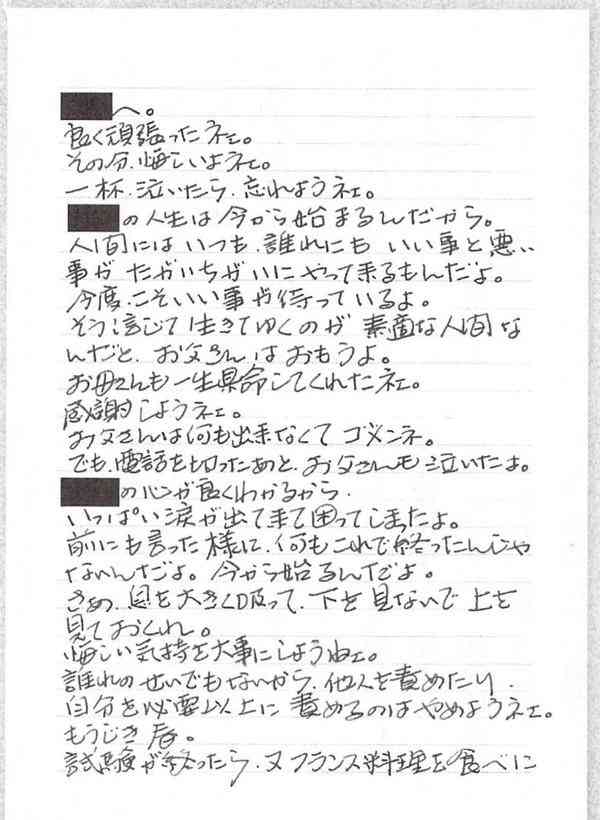 へ。
良く頑張ったネェ。
その分、悔しいよネェ。
一杯、泣いたら、忘れようネェ。
の人生は今から始まるんだから。
人間にはいつも、誰れにもいい事と悪い
事がたがいちがいにやって来るもんだよ。
今度、こそいい事が待っているよ。
そう信じて生きてゆくのが素適な人間な
んだと、お父さんはおもうよ。
お母さんも一生県命してくれたネェ。
感謝しようネェ。
お父さんは何も出来なくてゴメンネ。
でも、電話を切ったあと、お父さんも泣いたよ。
の心が良くわかるから、
いっぱい涙が出て来て困ってしまったよ。
前にも言った様に、何もこれで終ったんじゃ
ないんだよ。今から始るんだよ。
さあ、息を大きく吸って、下を見ないで上を
見ておくれ。
悔しい気持を大事にしようねェ。
誰れのせいでもないから、他人を責めたり、
自分を必要以上に責めるのはやめようネェ。
もうじき春。
試験が終ったら、又フランス料理を食べに